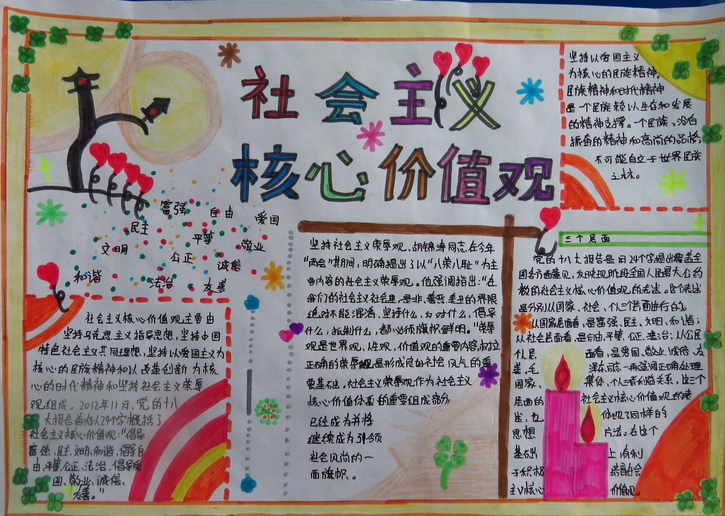 社会主义
核心价值观
坚持以爱国主义
为核心的民族精神,
民族精神和时代精神
是一个民族赖以生存和发展
的精神支撑。一个民族,没有
振奋的精神和高尚的品格,
不可能自立于世界民族
之林。
富强
自由
爱国
民主
平等
敬业
文明
公正
诚信
和谐
法治
友善
社会主义核心价值观主要由
坚持马克思主义指导思想,坚持中国
特色社会主义共同理想,坚持以爱国主义为
核心的民族精神和以改革创新为核
心的时代精神和坚持社会主义荣辱
观组成。2012年11月,党的十八
大报告首次以24个字概括了
社会主义核心价值观:“倡导
富强、民主、文明、和谐,倡导自
由、平等、公正、法治,倡导爱
国、敬业、诚信、
友善。”
坚持社会主义荣辱观、胡锦涛同志在今年
“两会”期间,明确提出了以“八荣八耻”为主
要内容的社会主义荣辱观。他强调指出:“在
我们的社会主义社会里,是非、善恶、美丑的界限
绝对不能混淆,坚持什么、反对什么,倡导
什么,抵制什么,都必须旗帜鲜明。”荣辱
观是世界观、人生观、价值观的重要内容,树立
正确的荣辱观是形成良好社会风气的重
要基础。社会主义荣辱观作为社会主义
核心价值体系的重要组成部分
已经成为并将
继续成为引领
社会风尚的一
面旗帜。
三个层面
党的十八大报告是用24个字提出覆盖全
国各方面意见、反映现阶段全国人民最大公约
数的社会主义核心价值观的表述。这个表述
是分别从国家、社会、个人三个层面进行的。
从国家层面看,是富强、民主、文明、和谐;
从社会层面看,是自由、平等、公正、法治;从公民
个人层面看,是爱国、敬业、诚信、友